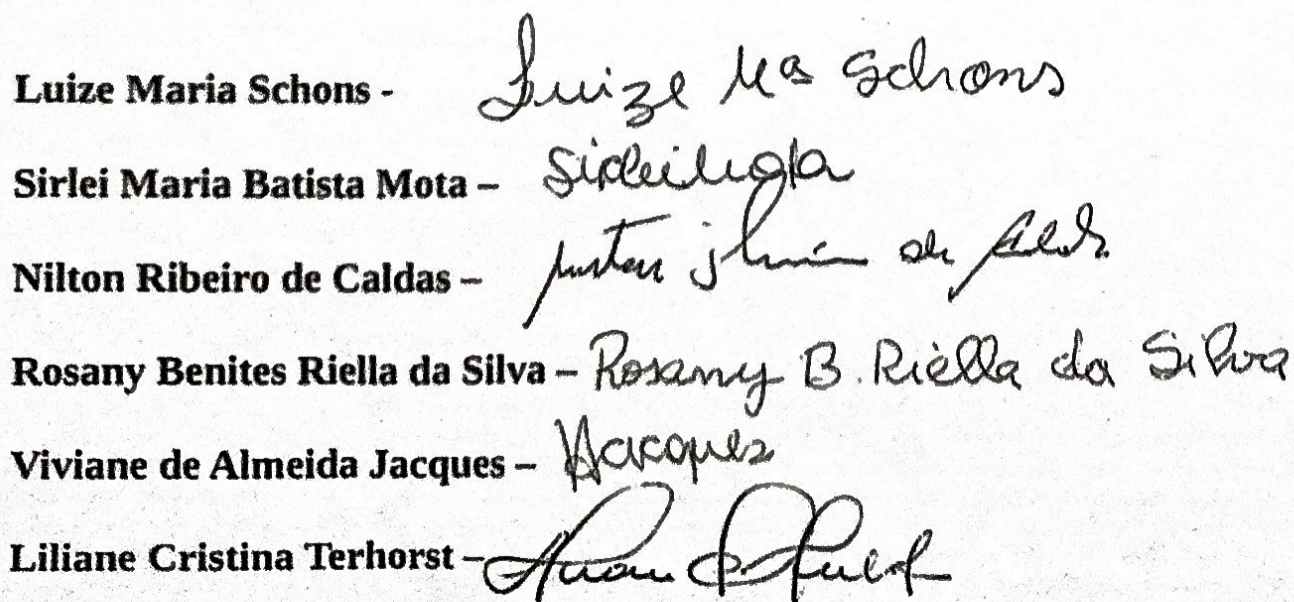 Luize Maria Schons - Luize Mª Schons
Sirlei Maria Batista Mota – Sirlei Mota
Nilton Ribeiro de Caldas –
Rosany Benites Riella da Silva – Rosany B. Riella da Silva
Viviane de Almeida Jacques – VJacques
Liliane Cristina Terhorst –